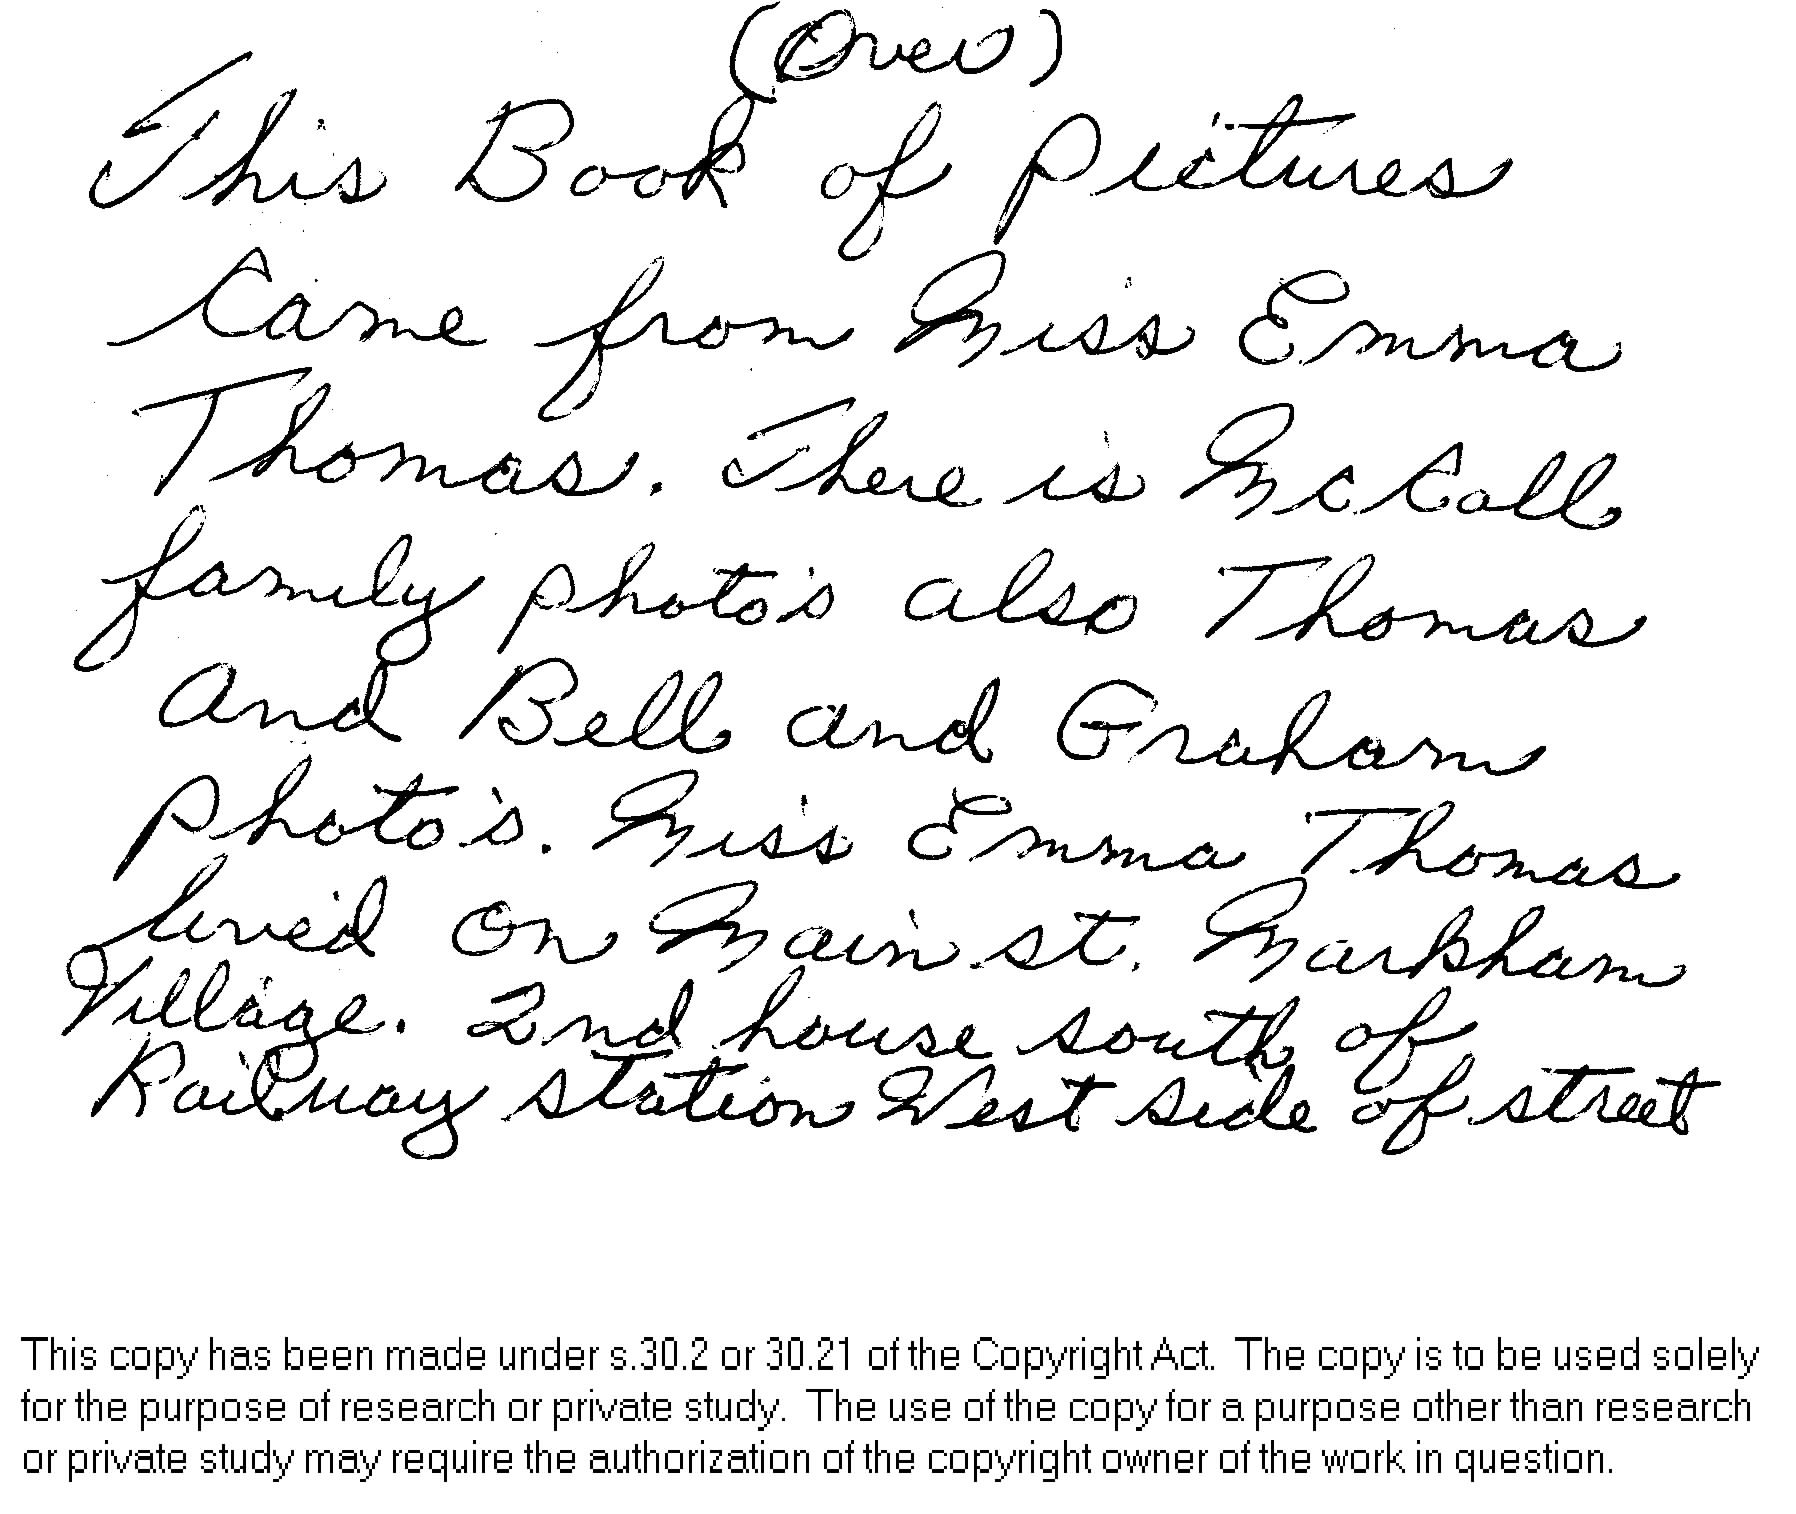 (Over)
This Book of Pictures
Came from Miss Emma
Thomas. There is McCall
family photo's also Thomas
and Bell and Graham
Photo's. Miss Emma Thomas
lived on Main st. Markham
Village. 2nd house south of
Railway station West side of street
This copy has been made under s.30.2 or 30.21 of the Copyright Act. The copy is to be used solely
for the purpose of research or private study. The use of the copy for a purpose other than research
or private study may require the authorization of the copyright owner of the work in question.